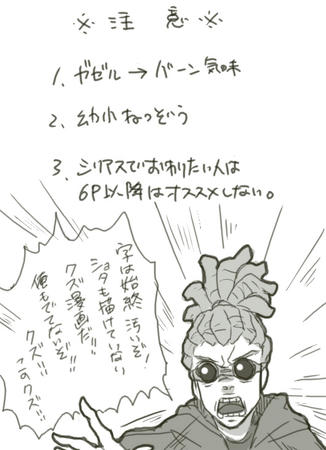 ※注意※
1、ガゼル→バーン気味
2、幼小ねつぞう
3、シリアスでおわりたい人は
6P以降はオススメしない。
字は始終汚いぞ!
ショタも描けていない
クズ漫画だ!!
俺もでてないぞ!!
クズ!!このクズ!!